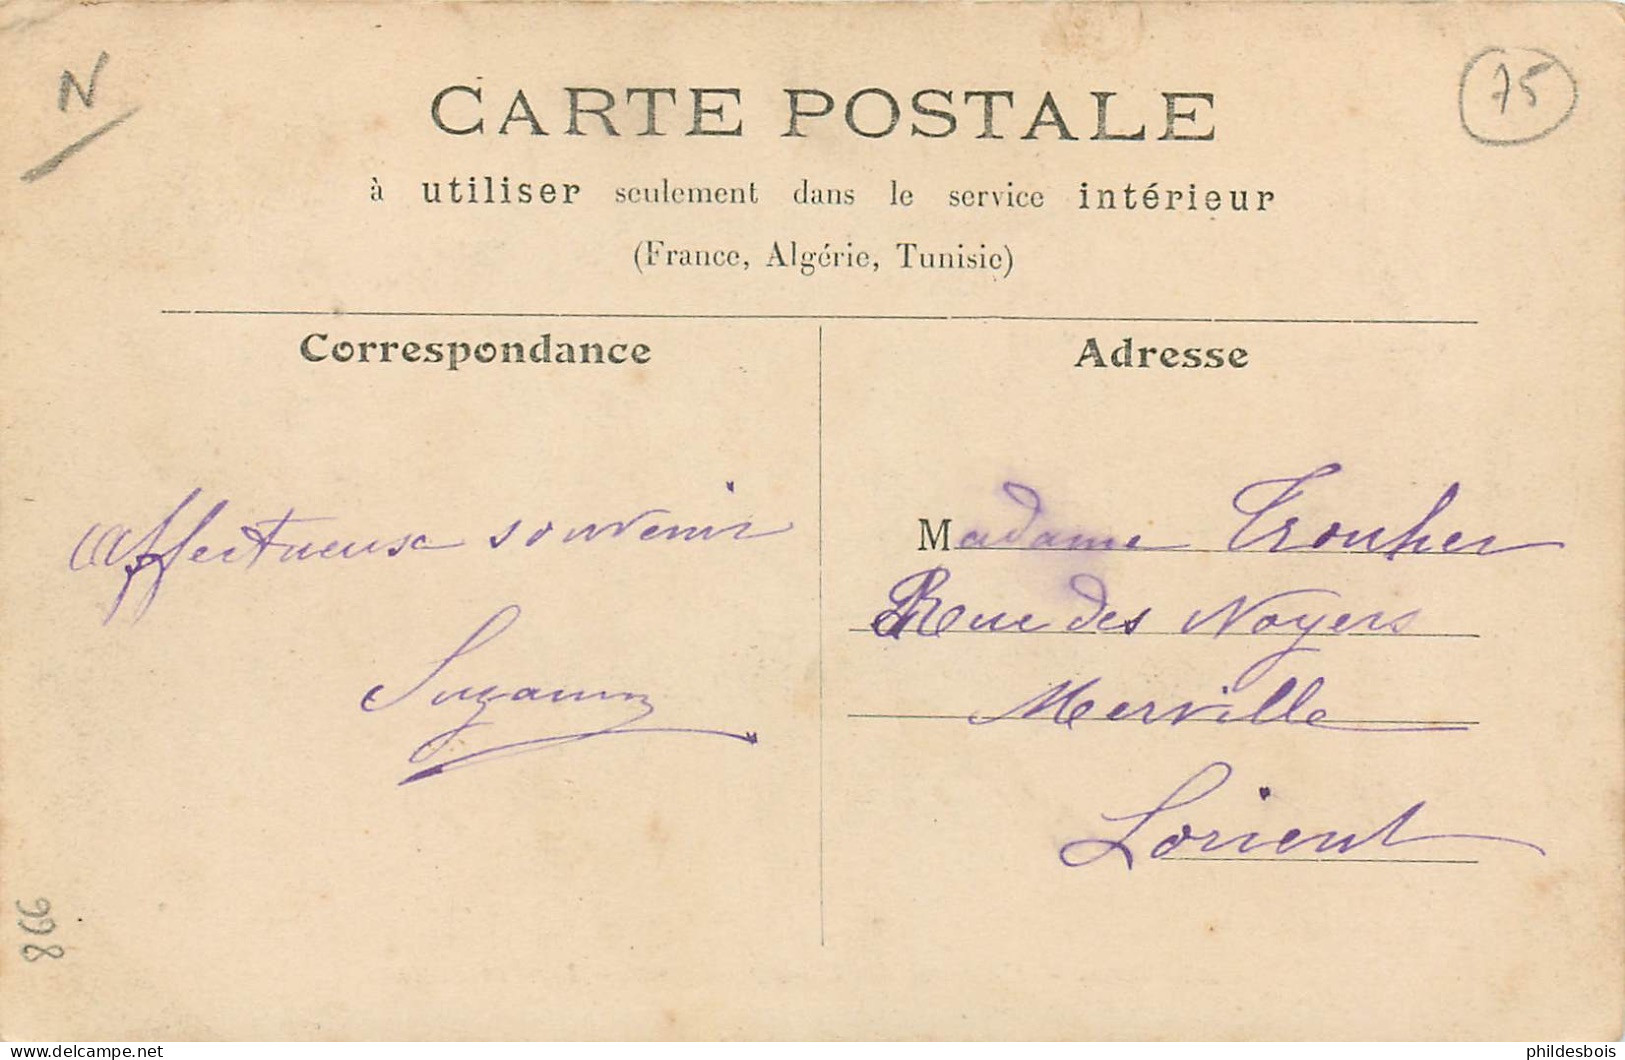 N
75
CARTE POSTALE
à utiliser seulement dans le service intérieur
(France, Algérie, Tunisie)
Correspondance
Affectueuse souvenir
Suzanne
Adresse
Madame
Rue des Noyers
Merville
Lorient
866
phildesbois